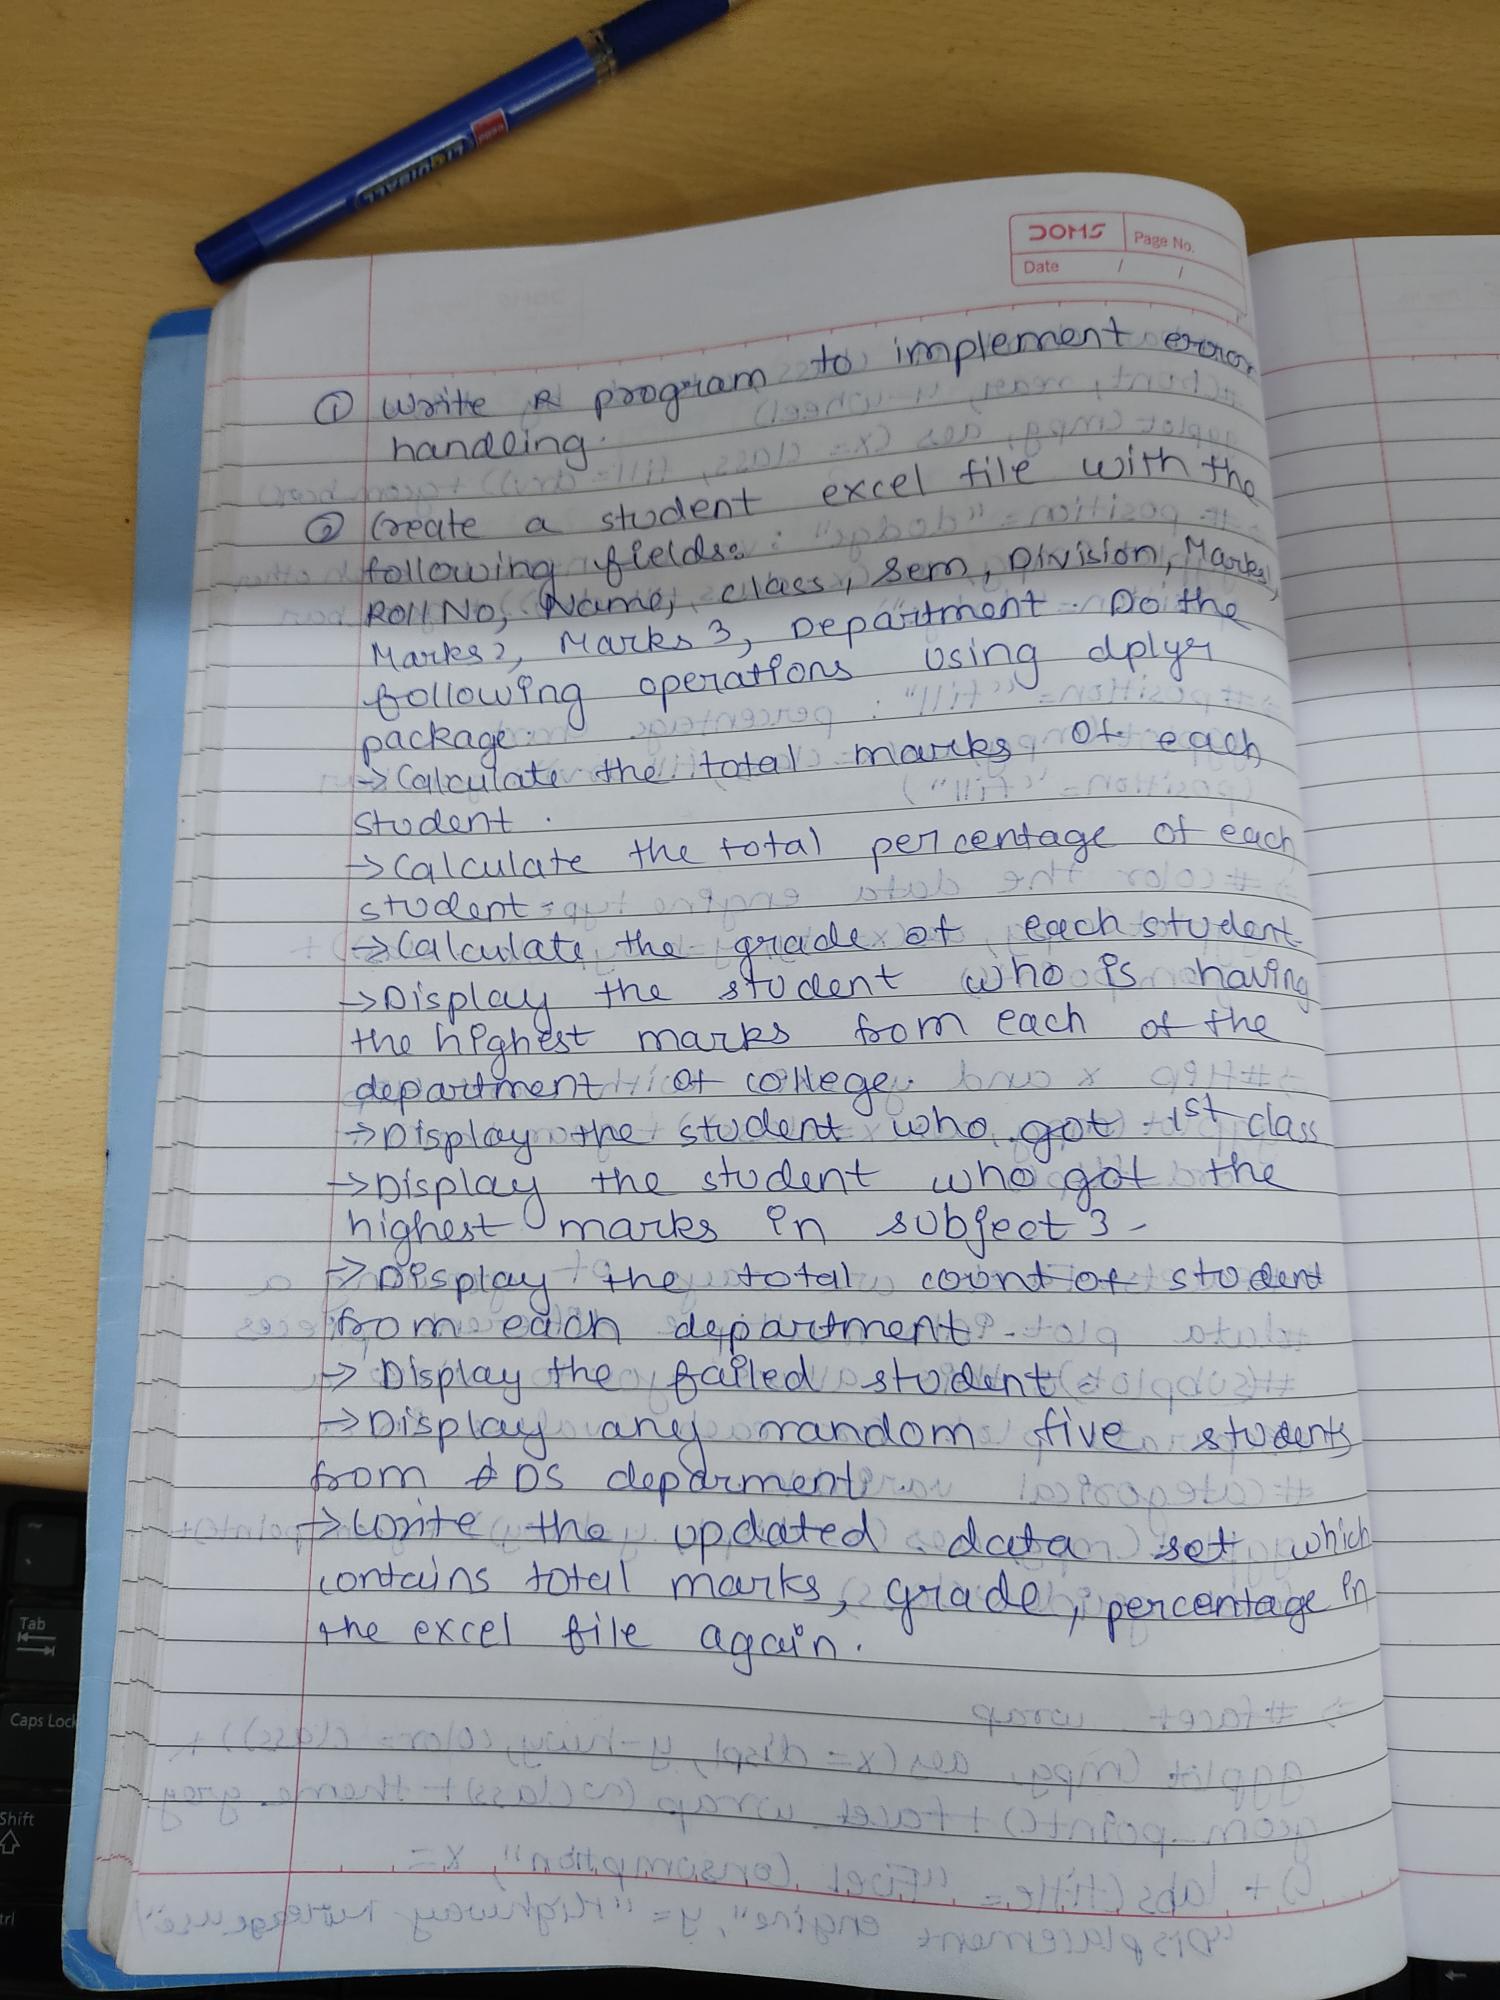 LIQUIBALL
cello
DOMS
Page No.
Date / /
① Write R program to implement error
handling.
② Create a student excel file with the
following fields:
Roll No, Name, class, Sem, Division, Marks1,
Marks2, Marks 3, Department. Do the
following operations using dplyr
package.
→ Calculate the total marks of each
student.
→ Calculate the total percentage of each
student
→ Calculate the grade of each student
→ Display the student who is having
the highest marks from each of the
department of college.
→ Display the student who got 1st class
→ Display the student who got the
highest marks in subject 3-
→ Display the total count of student
from each department.
→ Display the failed student
→ Display any random five students
from DS deparment
→ Write the updated data set which
contains total marks, grade, percentage in
the excel file again.
Tab
Caps Lock
Shift